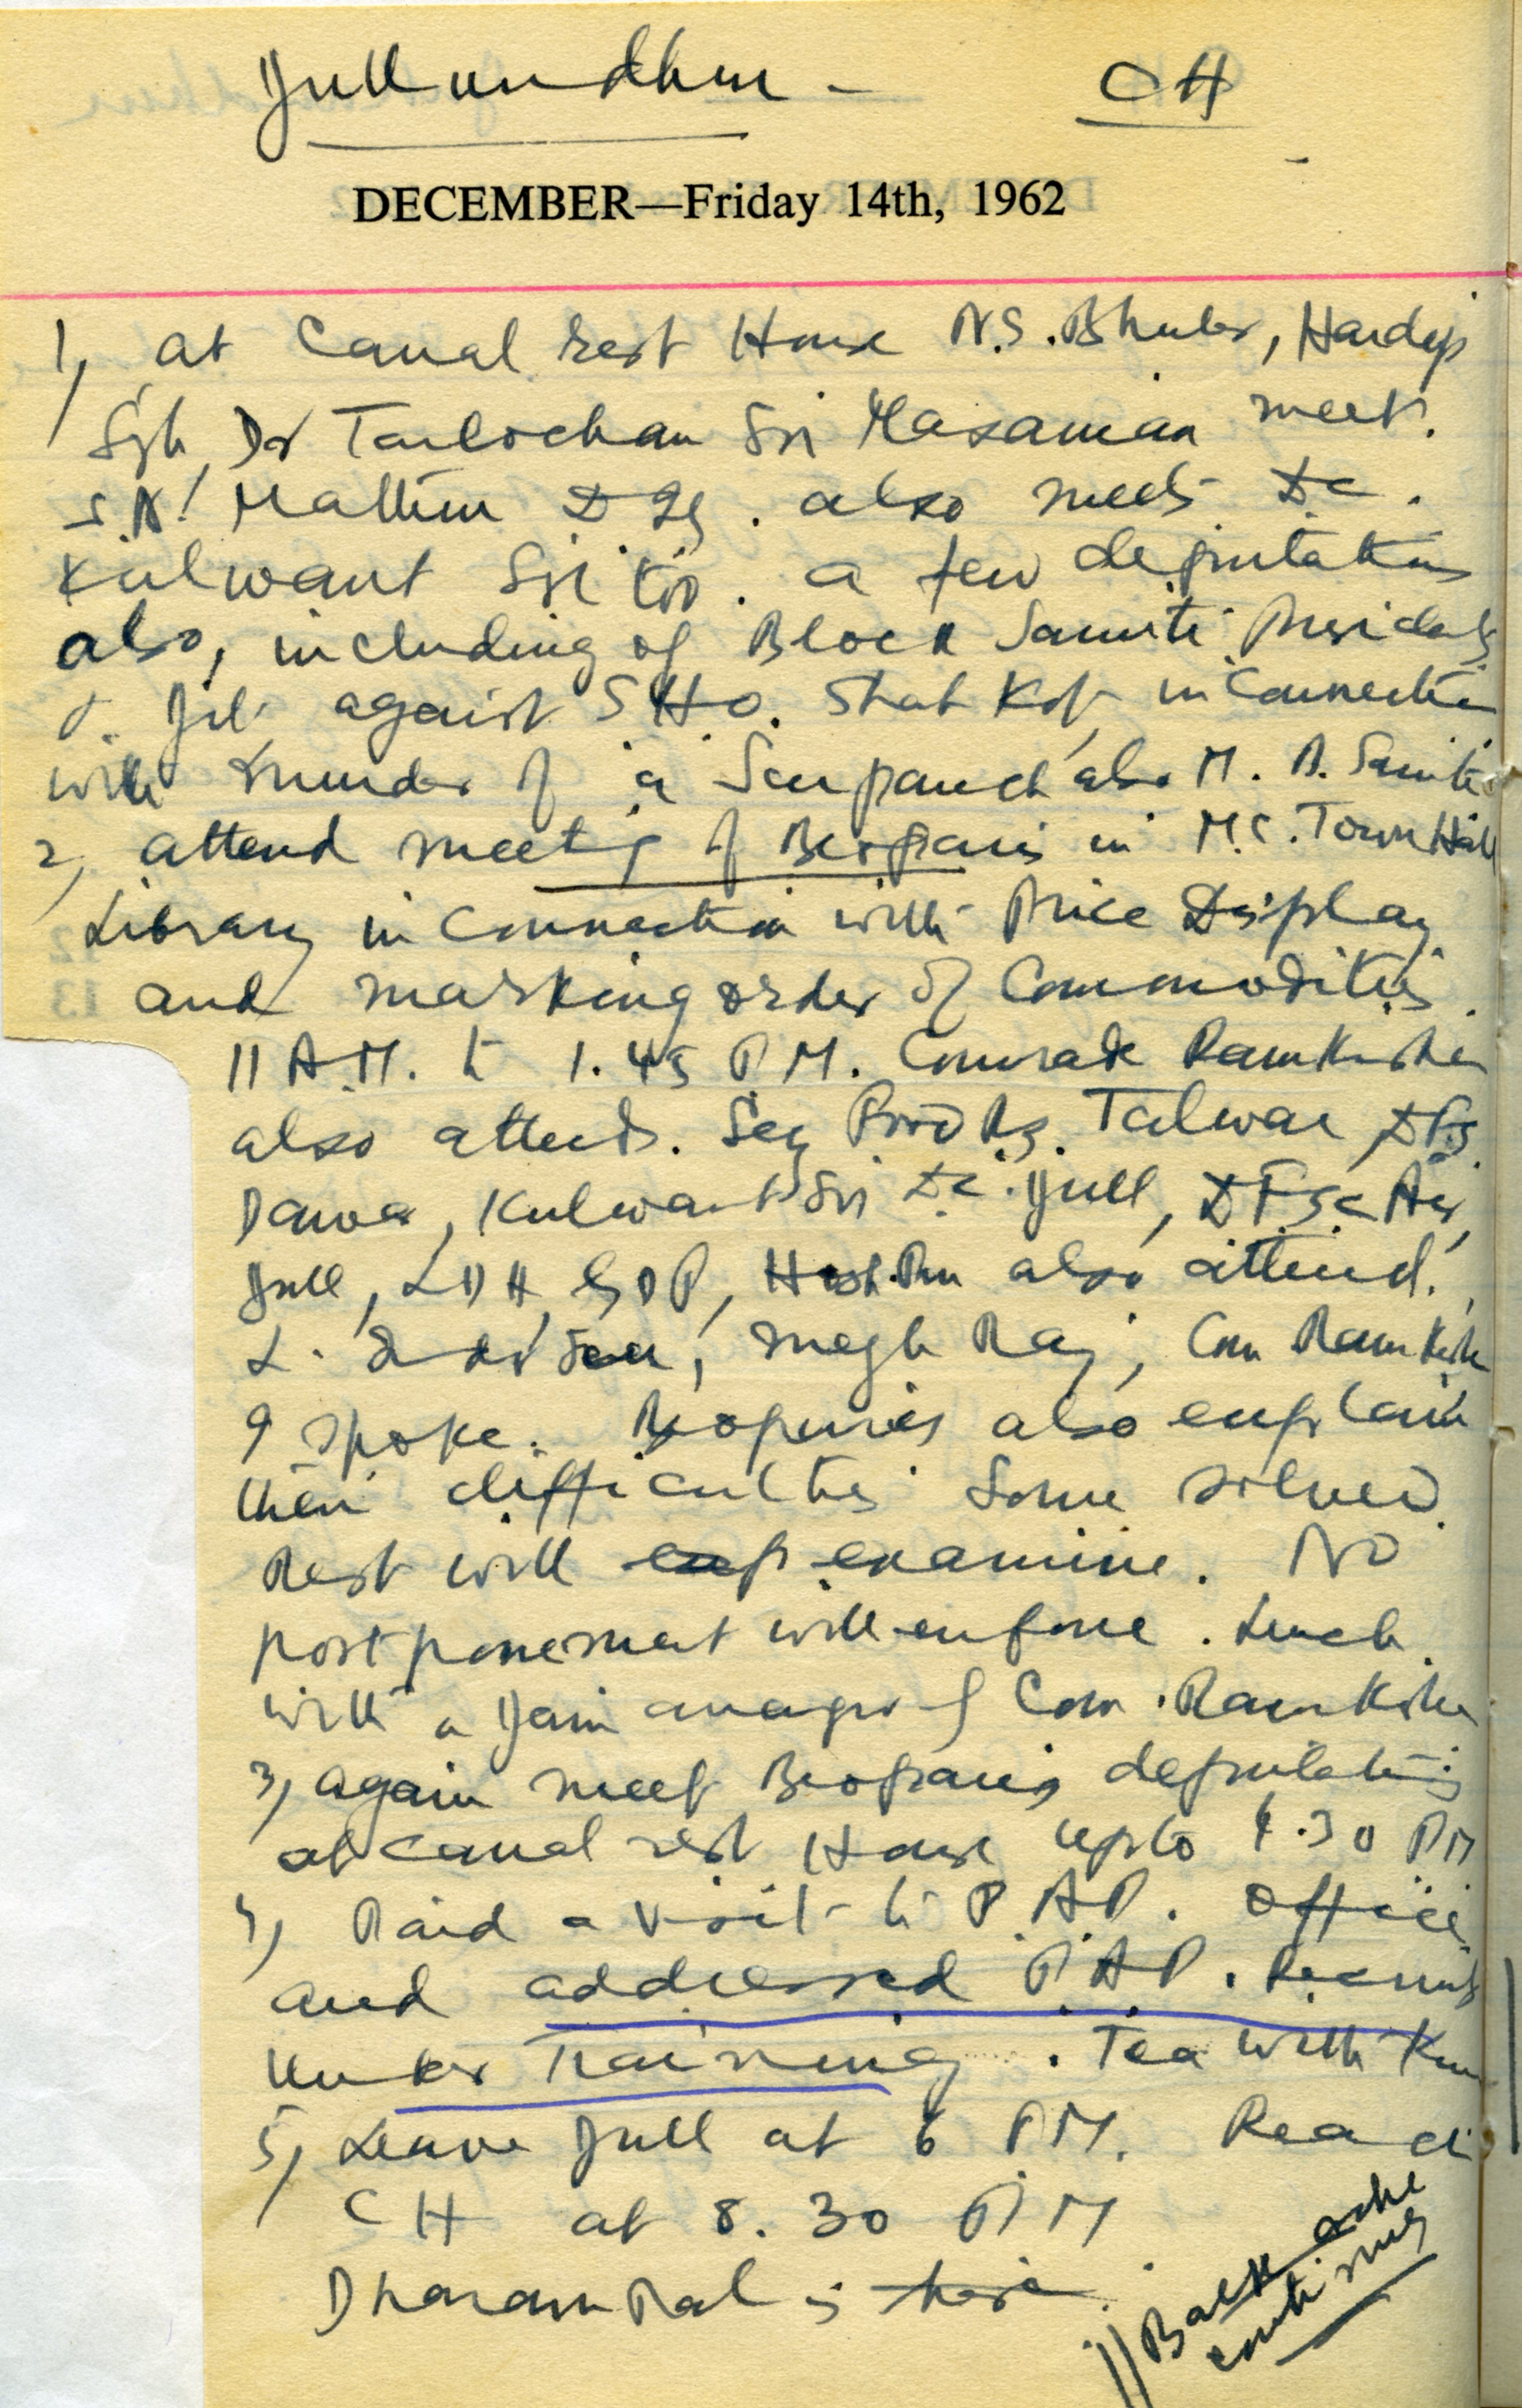 Jullundhur - CH
DECEMBER—Friday 14th, 1962
1, at Canal rest House N.S. Bhuler, Hardip
Sgh, Dr Tarlochan Sri meet.
S.N. Mathur DIG. also meets DC.
Kulwant Sri too. a few deputations
also, including of Block Samiti Presidents
against SHO. Shah Kot, in Connection
with murder of a Surpanch also M. B. Samiti
2, attend meeting of Beoparis in M.C. Town Hall
Library in Connection with Price Display
and marking order of Commodities.
11 A.M. to 1.45 P.M. Comrade Ram Kishen
also attends. Secy Food Talwar, DFS
Dawar, Kulwant Sri DC. Jull, DFSC Asr,
Jull, LDH, GDP, Hosh.Pur also attend.
L. Sen, Megh Raj, Com Ram Kishn
I spoke. Beoparies also explain
their difficulties Some solved.
Rest will exp examine. No
postponement will enforce. Lunch
with a Jain arranged of Com. Ram Kishen
3, again meet Beoparis deputations
at Canal rest House upto 4.30 PM
4, Paid a visit to P.A.P. Office
and addressed P.A.P. Recruits
Under Training. Tea with
5, Leave Jull at 6 PM. Reach
CH at 8.30 PM
Dharam Pal is here.
// Back ache
continues